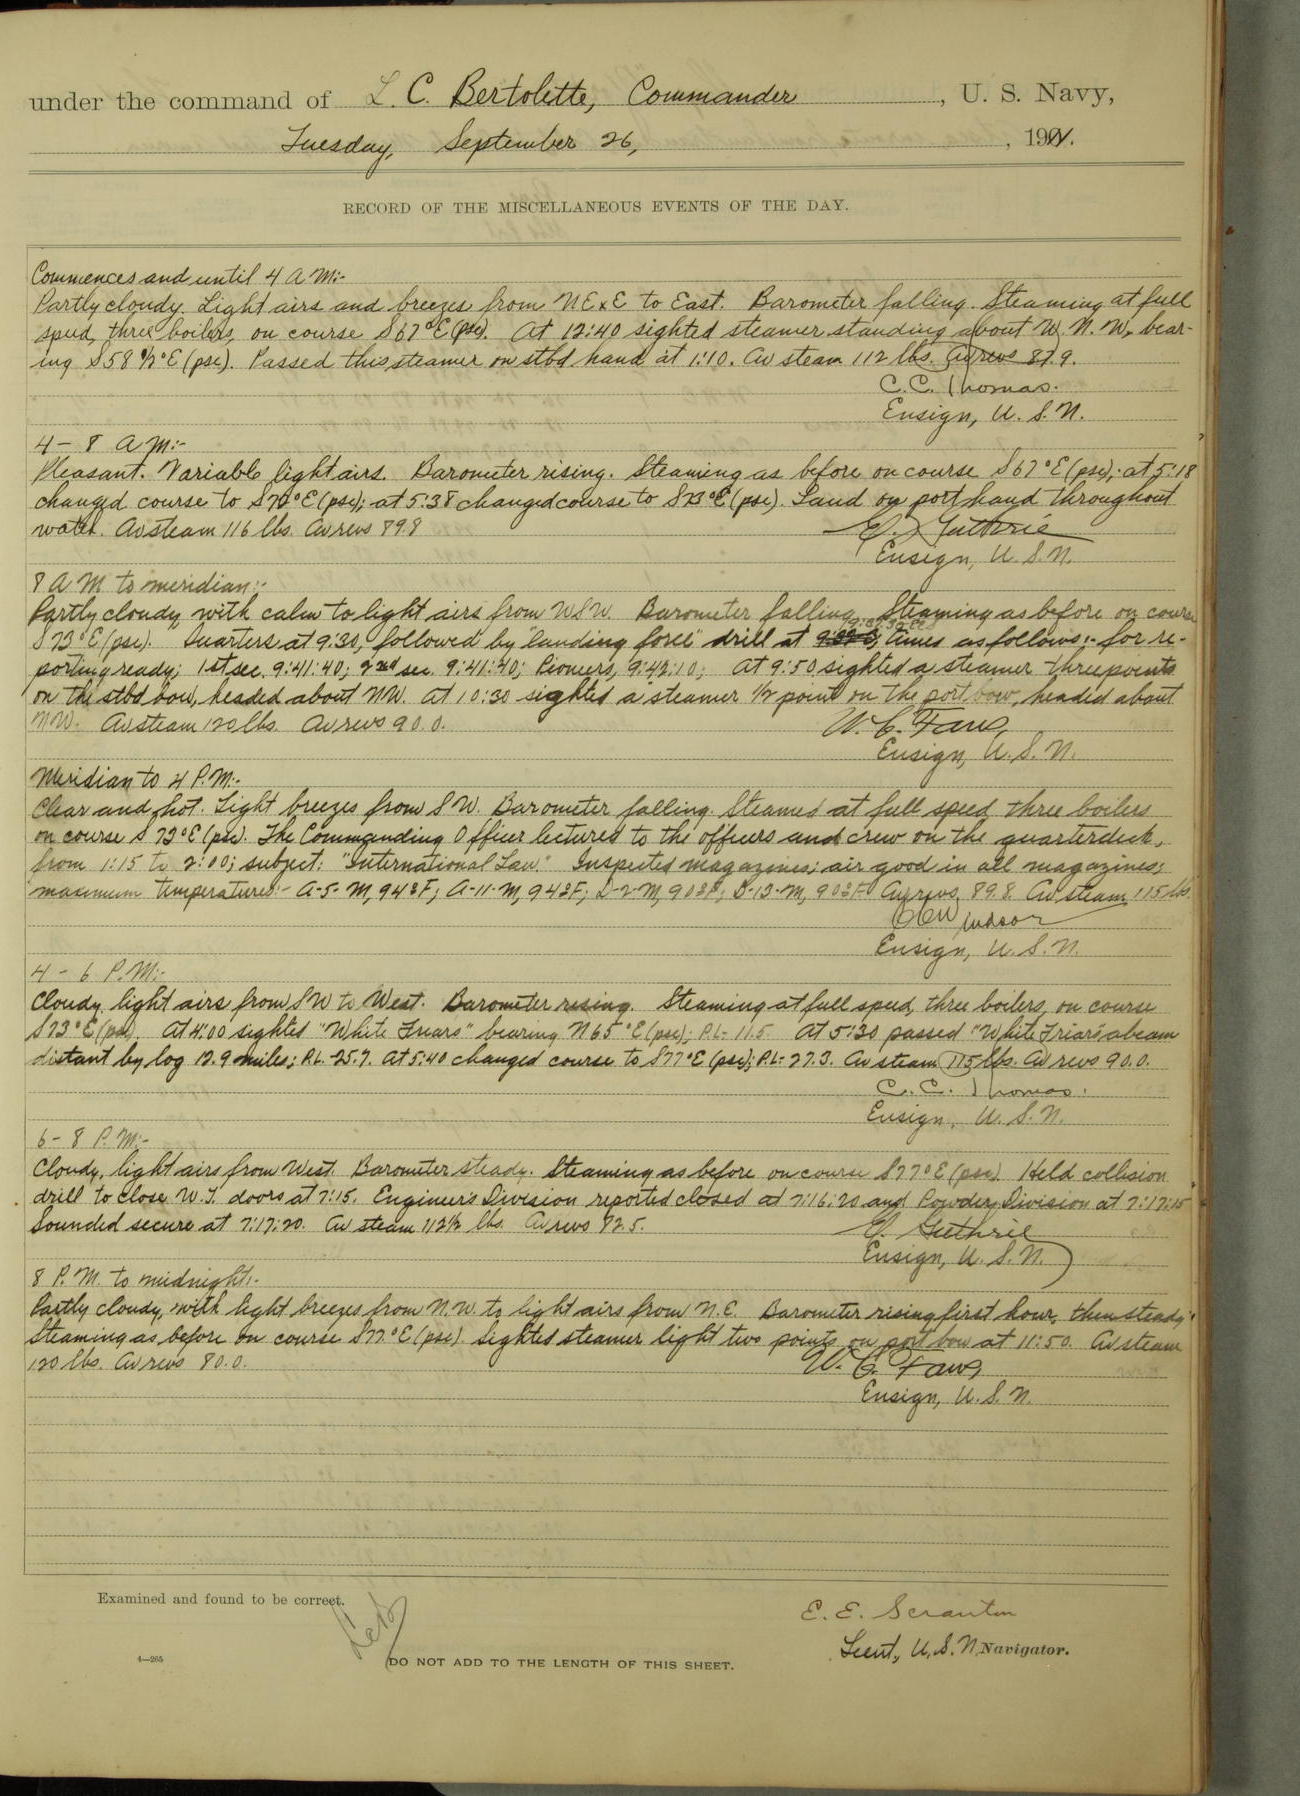 under the command of L. C. Bertolette, Commander, U. S. Navy,
Tuesday, September 26, , 19
RECORD OF THE MISCELLANEOUS EVENTS OF THE DAY.
Commences and until 4 A M:-
Partly cloudy. Light airs and breezes from NExE to East. Barometer falling. Steaming at full
speed, three boilers, on course S67°E (psc). At 12:40 sighted steamer standing about W. N. W, bear-
ing S58½°E (psc). Passed this steamer on stbd hand at 1:10. Av steam 112 lbs. Av revs 87.9.
C. C. Thomas.
Ensign, U. S. N.
4 - 8 A M:-
Pleasant. Variable light airs. Barometer rising. Steaming as before on course S67°E (psc); at 5:18
changed course to S72°E (psc); at 5:38 changed course to S73°E (psc). Land on port hand throughout
watch. Av steam 116 lbs. Av revs 89.8
E. Guthrie
Ensign, U. S. N.
8 A M to meridian:-
Partly cloudy with calm to light airs from WSW. Barometer falling. Steaming as before on course
S73°E (psc). Quarters at 9:30, followed by "landing force" drill at times as follows:- for re-
porting ready; 1st sec. 9:41:40; 2nd sec. 9:41:40; Pioneers, 9:42:10; At 9:50 sighted a steamer three points
on the stbd bow, headed about NW. At 10:30 sighted a steamer ½ point on the port bow, headed about
NW. Av steam 120 lbs. Av revs 90.0.
W. C. Faus,
Ensign, U. S. N.
Meridian to 4 P.M:-
Clear and hot. Light breezes from SW. Barometer falling. Steamed at full speed, three boilers
on course S 73°E (psc). The Commanding Officer lectured to the officers and crew on the quarterdeck,
from 1:15 to 2:00; subject: "International Law." Inspected magazines; air good in all magazines;
maximum temperatures:- A-5-M, 94°F; A-11-M, 94°F; D-2-M, 90°F; D-13-M, 90°F. Av revs. 89.8. Av steam 115 lbs.
Windsor
Ensign, U. S. N.
4 - 6 P. M:-
Cloudy, light airs from SW to West. Barometer rising. Steaming at full speed, three boilers, on course
S73°E (psc). At 4:00 sighted "White Friars" bearing N65°E (psc); P.L- 11.5. At 5:30 passed "White Friars" abeam
distant by log 12.9 miles; P.L- 25.7. At 5:40 changed course to S77°E (psc); P.L- 27.3. Av steam 115 lbs. Av revs 90.0.
C. C. Thomas.
Ensign, U. S. N.
6 - 8 P. M:-
Cloudy, light airs from West. Barometer steady. Steaming as before on course S77°E (psc). Held collision
drill to close W.T. doors at 7:15. Engineer's Division reported closed at 7:16:20 and Powder Division at 7:17:15
Sounded secure at 7:17:20. Av steam 112½ lbs. Av revs 82.5.
E. Guthrie
Ensign, U. S. N.
8 P. M. to midnight:-
Partly cloudy, with light breezes from N.W. to light airs from N.E. Barometer rising first hour, then steady.
Steaming as before on course S77°E (psc). Sighted steamer light two points on port bow at 11:50. Av steam
120 lbs. Av revs 80.0.
W. C. Faus,
Ensign, U. S. N.
Examined and found to be correct.
E. E. Scranton
Lieut, U. S. N. Navigator.
4—265
DO NOT ADD TO THE LENGTH OF THIS SHEET.